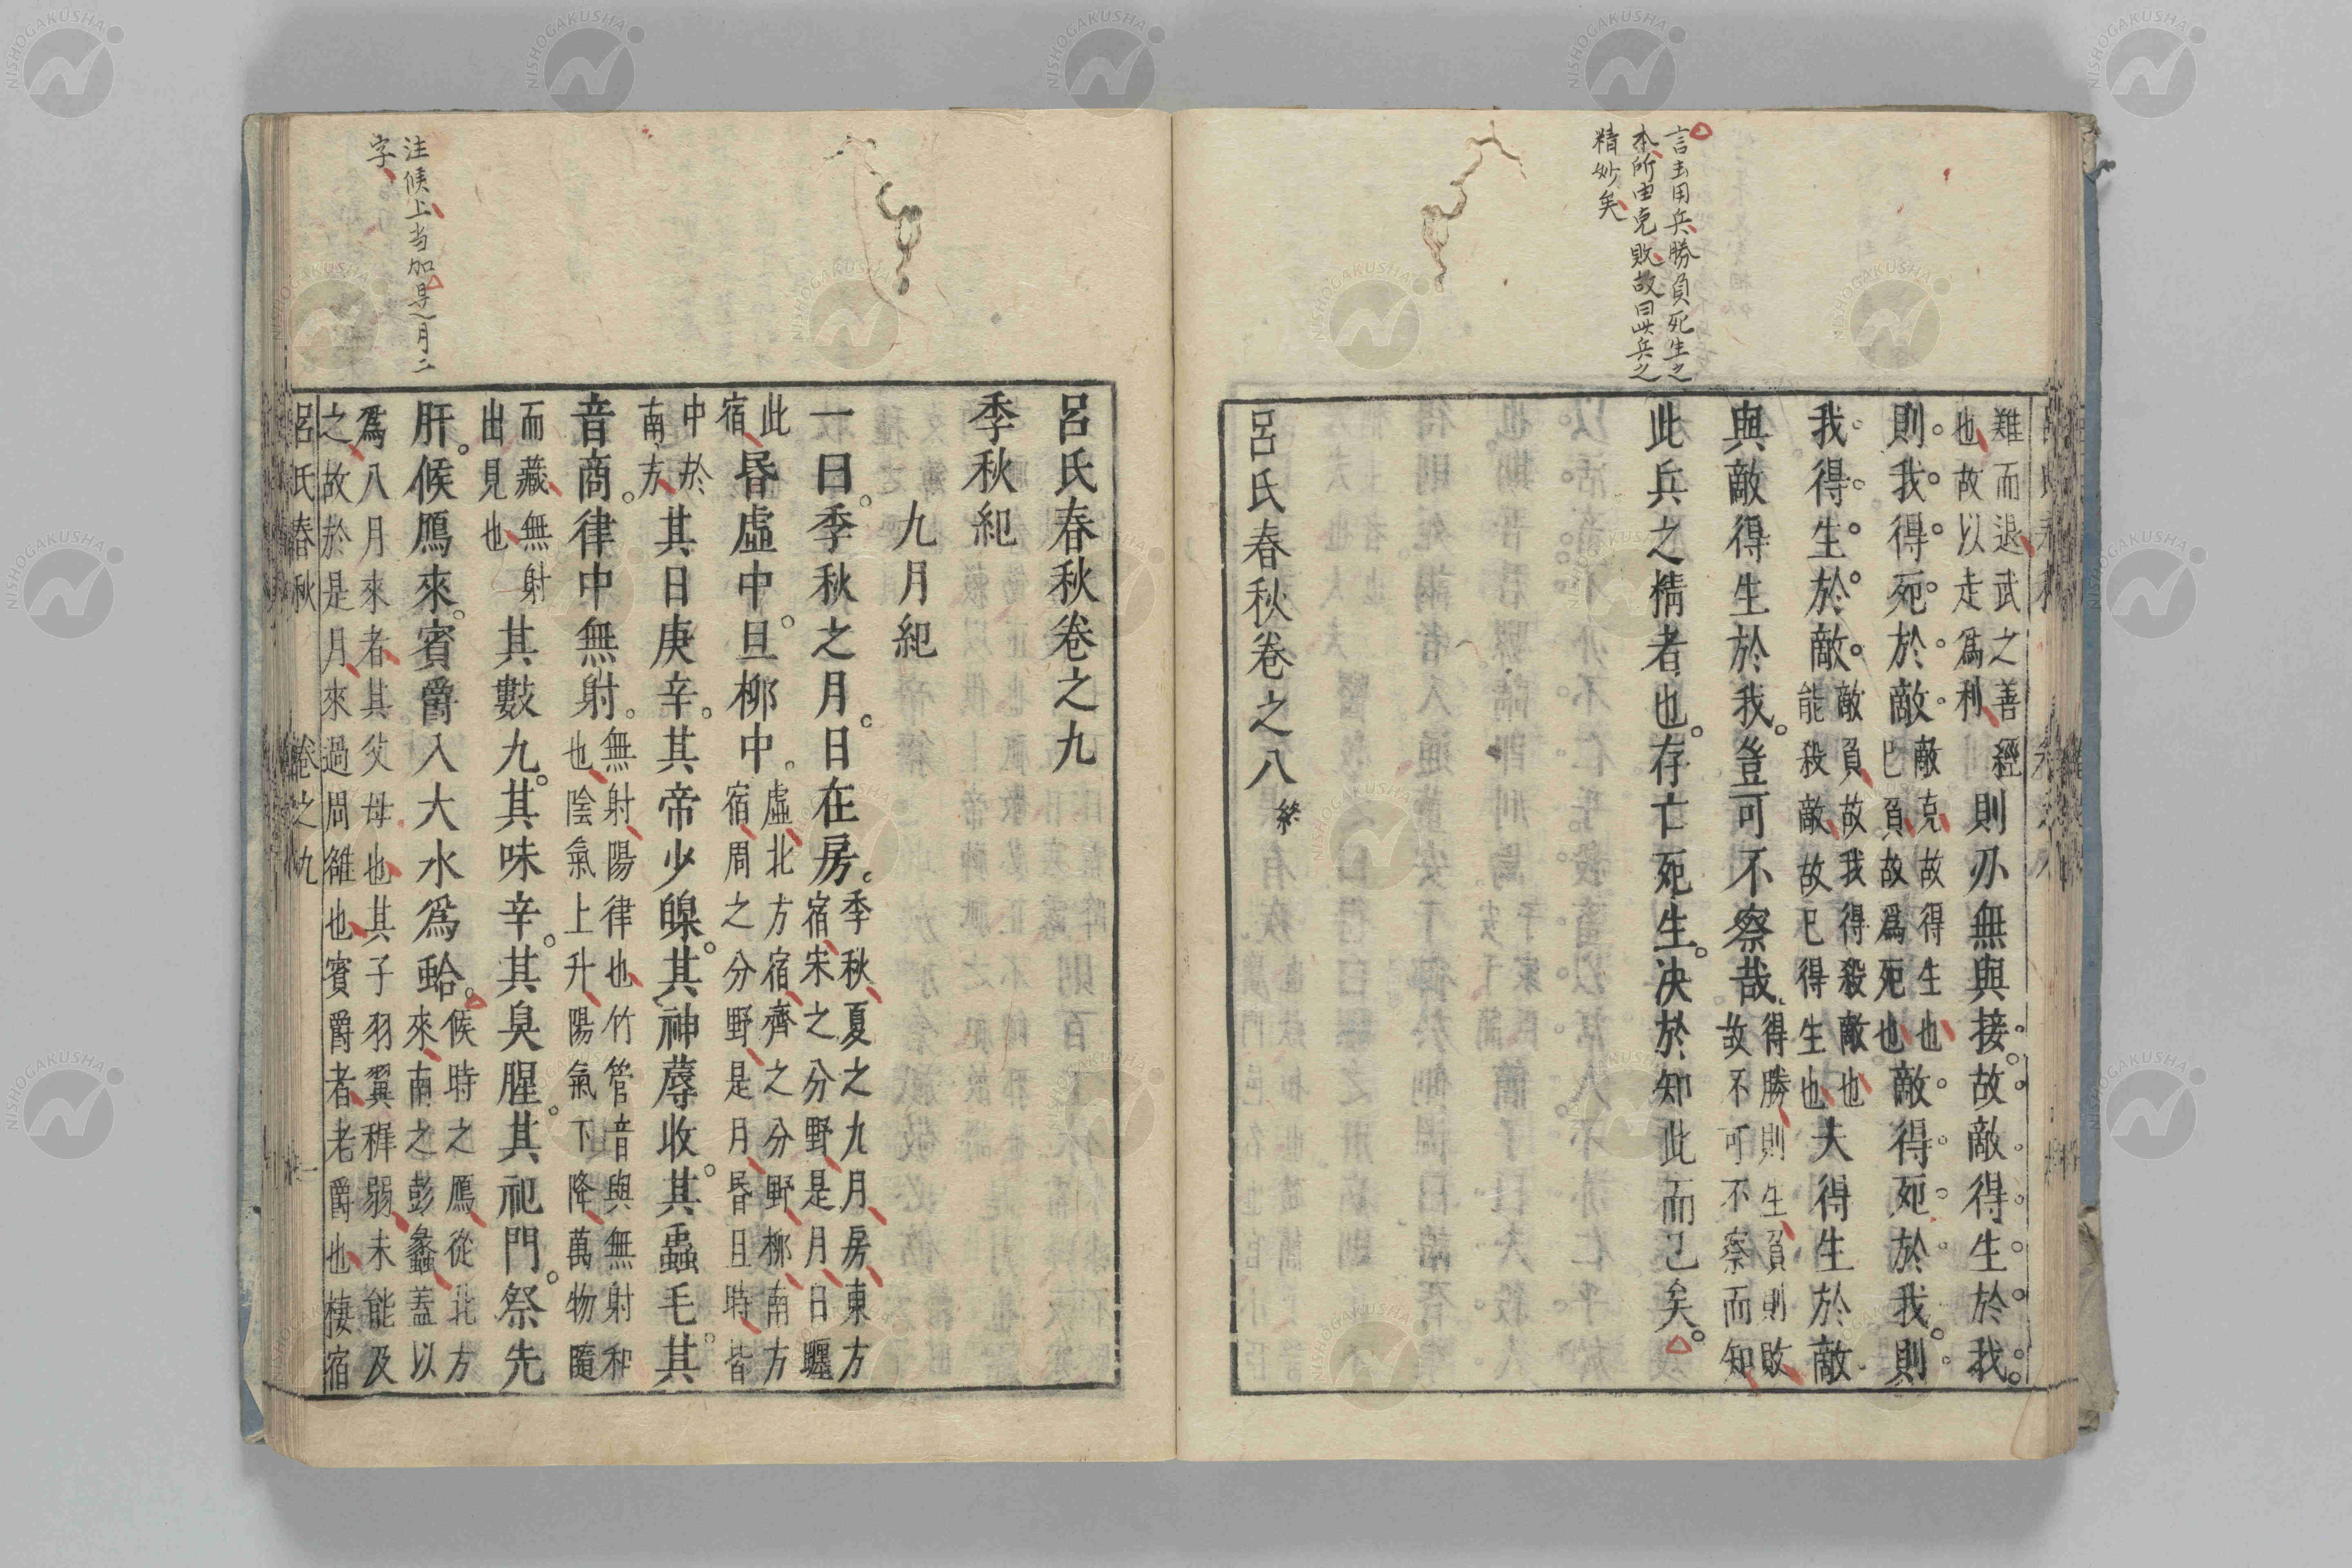 言主用兵勝負死生之
本所由克敗故曰此兵之
精妙矣
難而退武之善經
也故以走爲利
則刅無與接。故敵得生於我。
則我得死於敵。
敵克故得生也
已負故爲死也
敵得死於我。則
我得生於敵。
敵負故我得殺敵也
能殺敵故已得生也
夫得生於敵
與敵得生於我。豈可不察哉。
得勝則生負則敗
故不可不察而知
此兵之精者也。存亡死生。決於知此而已矣。
呂氏春秋卷之八終
呂氏春秋卷之九
季秋紀
九月紀
一曰。季秋之月。日在房。
季秋夏之九月房東方
宿宋之分野是月日躔
此
宿
昏虛中。旦柳中。
虛北方宿齊之分野柳南方
宿周之分野是月昏旦時皆
中於
南方
其日庚辛。其帝少皞。其神蓐收。其蟲毛。其
音商。律中無射。
無射陽律也竹管音與無射和
也陰氣上升陽氣下降萬物隨
而藏無射
出見也
其數九。其味辛。其臭腥。其祀門。祭先
肝。候鴈來。賓爵入大水爲蛤。
候時之鴈從北方
來南之彭蠡蓋以
爲八月來者其父母也其子羽翼穉弱未能及
之故於是月來過周雒也賓爵者老爵也棲宿
呂氏春秋 卷之九 一
注候上当加是月二
字